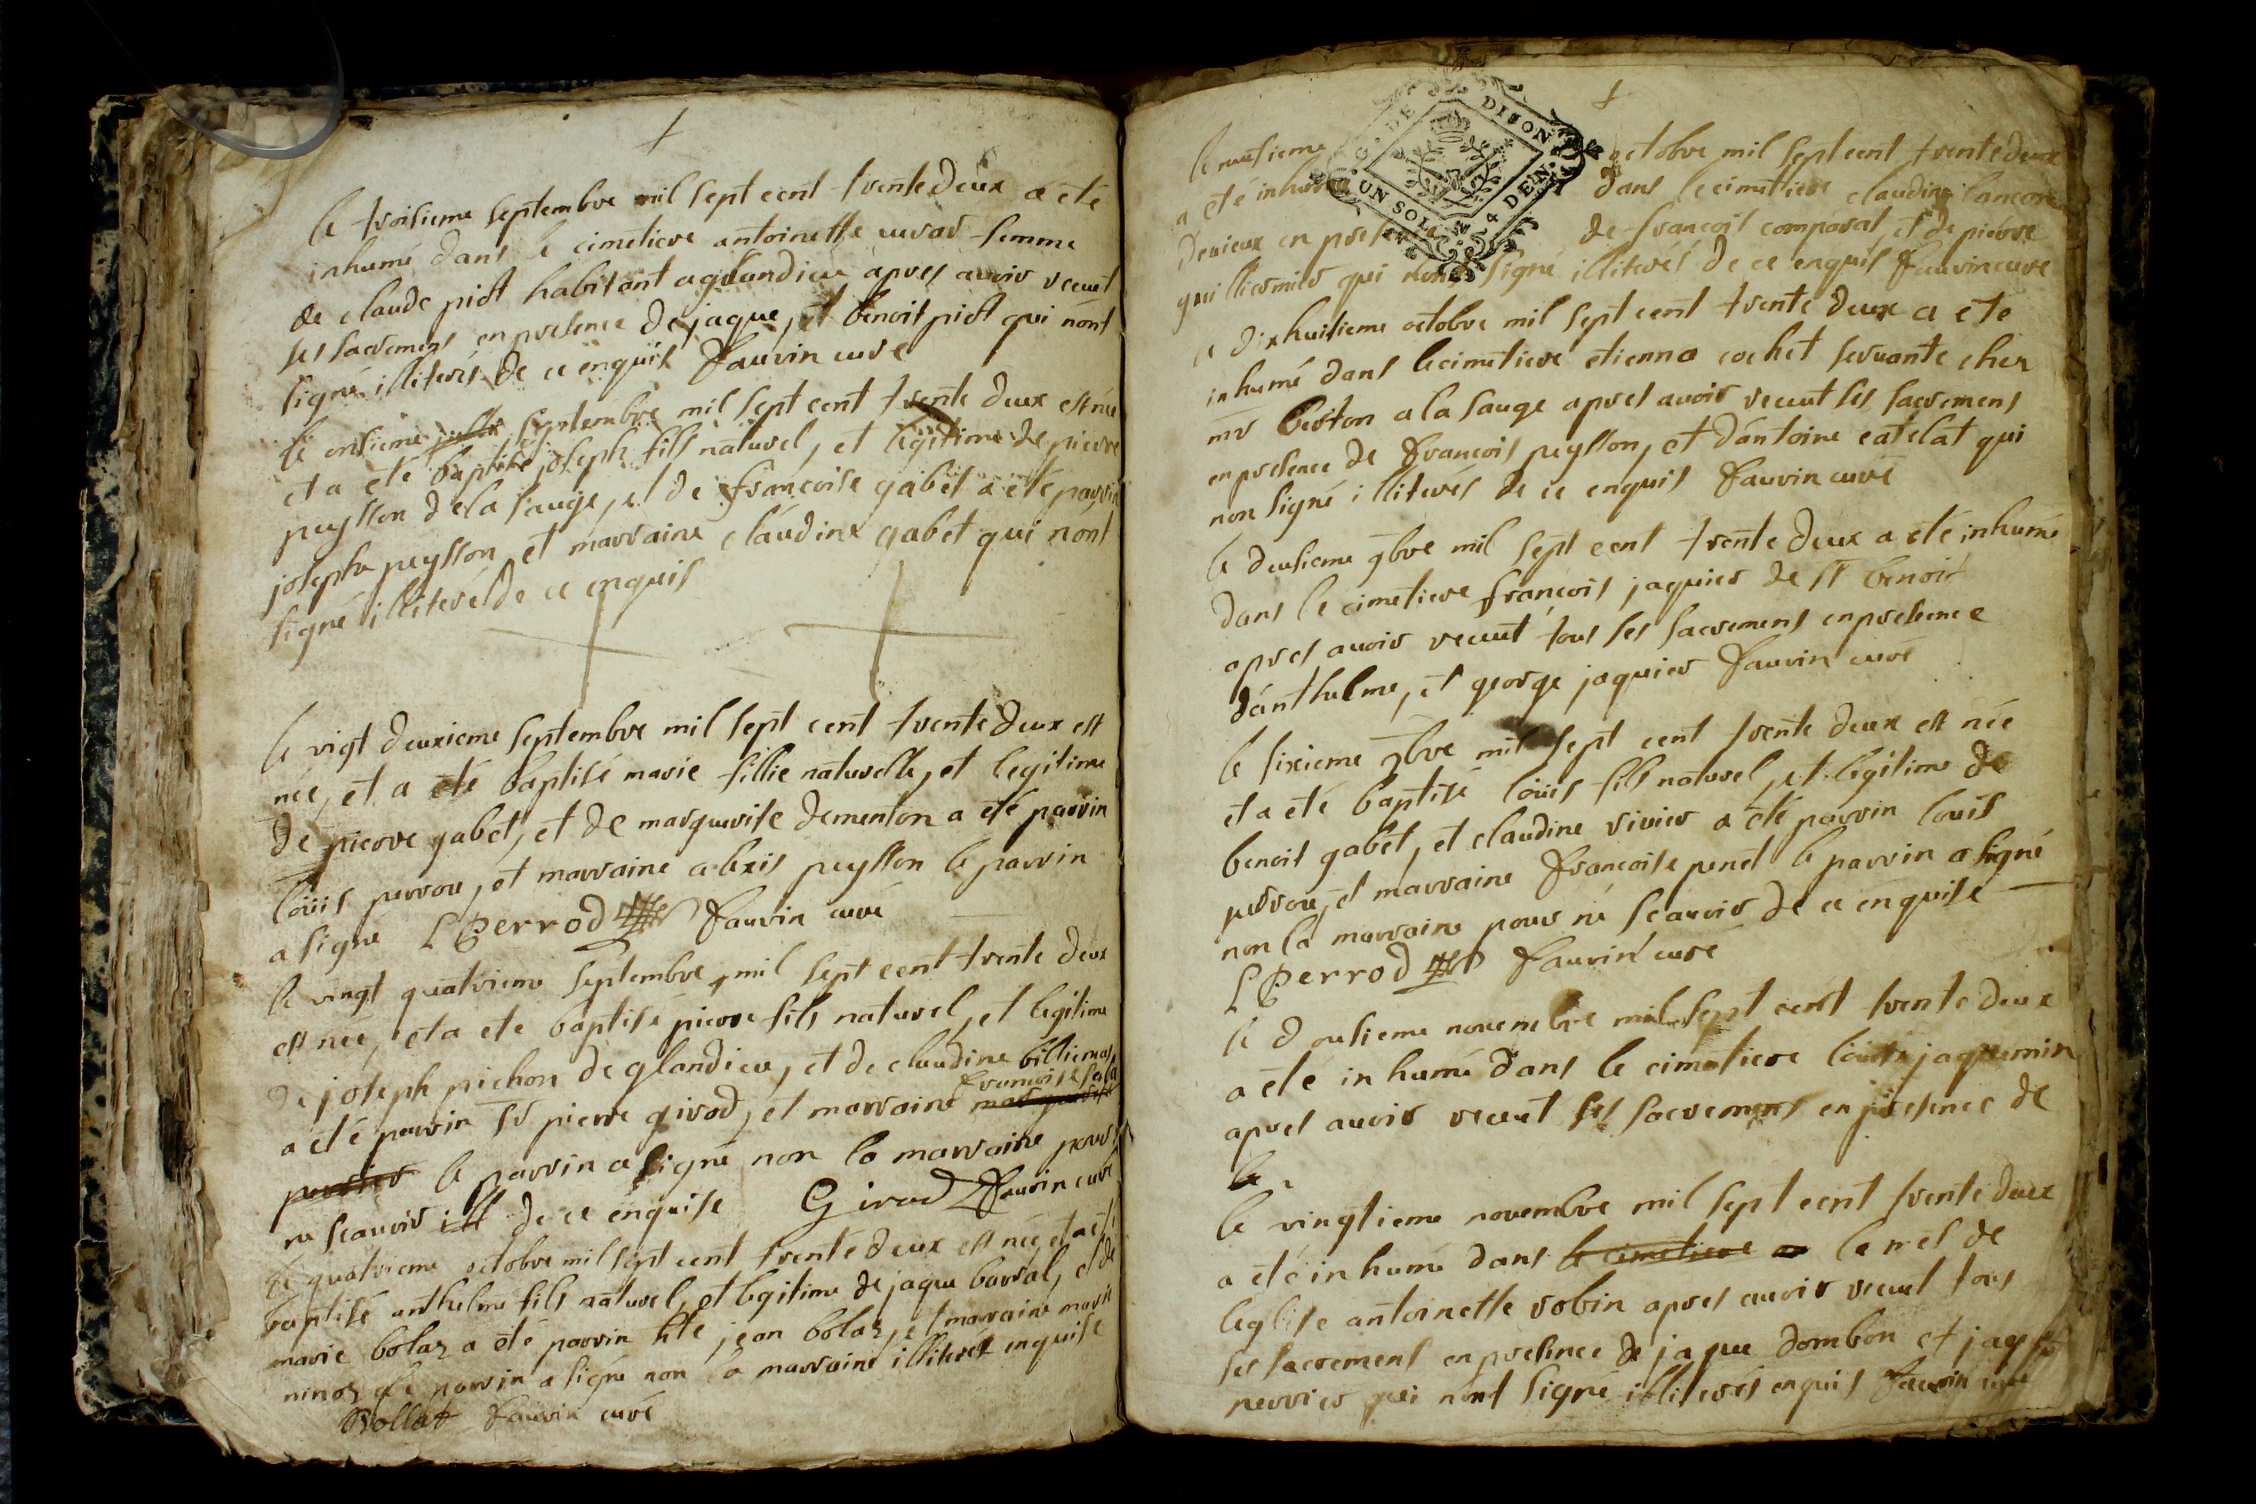 le troisieme septembre mil sept cent trente deux a eté
inhumé dans le cimetiere antoinette feme
de claude piot habitant a glandieu apres avoir receut
ses sacremens en presence de jaque, et benoit piot qui n'ont
signé illiterés de ce enquis fauvin curé
le onsieme septembre mil sept cent trente deux est née
et a eté baptisé joseph fils naturel, et legitime de pierre
peysson de la sauge, et de françoise gabet a eté parrin
joseph peysson et marraine claudine gabet qui n'ont
signé illiterés de ce enquis
le vigt deuxieme septembre mil sept cent trente deux est
née, et a eté baptisé marie fillie naturelle, et legitime
de pierre gabet, et de marguerite dementon a eté parrin
louis perrou, et marraine alexis peysson le parrin
a signé L Perrod fauvin curé
le vingt quatrieme septembre mil sept cent trente deux
est née, et a eté baptisé pierre fils naturel, et legitime
de joseph pichon de glandieu, et de claudine billiemas
francoise
a eté parrin sr pierre girod, et marraine
le parrin a signé non la marraine pour
ne scauoir ill de ce enquise Girod fauvin curé
le quatrieme octobre mil sept cent trente deux est née et a eté
baptisé anthelme fils naturel, et legitime de jaque barral, et de
marie bolaz a eté parrin hte jean bolaz, et marraine marie
ninoz le parrin a signé non la marraine illiteré enquise
Bollat fauvin curé
G. DE DIJON
UN SOL 4 DEN.
le octobre mil sept cent trente deux
a eté inhumé dans le cimetiere claudine
en presence de françois comparat, et de pierre
qui n'ont signé illiterés de ce enquis fauvin curé
le dixhuitieme octobre mil sept cent trente deux a eté
inhumé dans le cimetiere etienna cochet servante chez
mr berton a la sauge apres auoir receut ses sacremens
en presence de françois peysson, et d'antoine catelat qui
non signé illiterés de ce enquis fauvin curé
le deusieme 9bre mil sept cent trente deux a eté inhumé
dans le cimetiere françois jaquier de st benoit
apres auoir receut tous ses sacremens en presence
d'anthelme, et george jaquier fauvin curé
le sixieme 9bre mil sept cent trente deux est née
et a eté baptisé louis fils naturel, et legitime de
benoit gabet, et claudine vivier a eté parrin louis
perrou, et marraine françoise penet le parrin a signé
non la marraine pour ne scauoir de ce enquise
L Perrod fauvin curé
le dousieme novembre mil sept cent trente deux
a eté inhumé dans le cimetiere jaquemin
apres auoir receut ses sacremens en presence de
le
le vingtieme novembre mil sept cent trente deux
a eté inhumé dans le cimetiere la nef de
leglise antoinette robin apres auoir receut tous
ses sacremens en presence de jaque dombon et jaque
perrier qui n'ont signé illiterés enquis fauvin curé